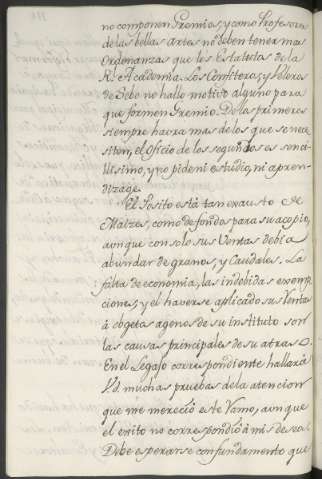 no componen Gremios, y como Profesores
de las bellas Artes no deben tener mas
Ordenanzas que los Estatutos de la
Rl. Academia. Los Confiteros, y Veleros
de Sebo no hallo motivo alguno para
que formen Gremio. De los primeros
siempre havra mas de los que se nece
siten, el Oficio de los segundos es senci
llisimo, y no pide ni estudio, ni apren
dizage.
El Posito está tan exausto de
Maizes, como de fondos para su acopio,
aunque con solo sus Ventas debia
abundar de granos, y Caudales. La
falta de economia, las indebidas exemp
ciones, y el haverse aplicado sus Ventas
á obgetos agenos de su instituto son
las causas principales de su atraso.
En el Legajo correspondiente hallará
V.S. muchas pruebas de la atencion
que me mereció este Ramo, aunque
el exito no correspondió á mis deseos.
Debe esperarse con fundamento que